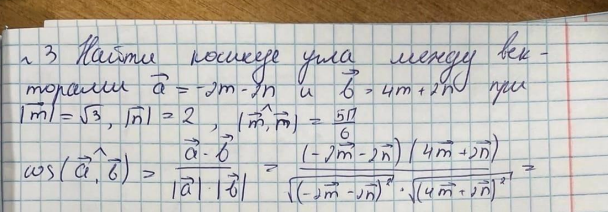 №3 Найти косинус угла между век-
торами a⃗ = -2m - 2n и b⃗ = 4m + 2n при
|m⃗| = √3, |n⃗| = 2, (m⃗,^n⃗) = 5π/6
cos(a⃗,^b⃗) = a⃗·b⃗ / |a⃗|·|b⃗| = (-2m⃗ - 2n⃗)(4m⃗ + 2n⃗) / √(-2m⃗ - 2n⃗)² · √(4m⃗ + 2n⃗)² =